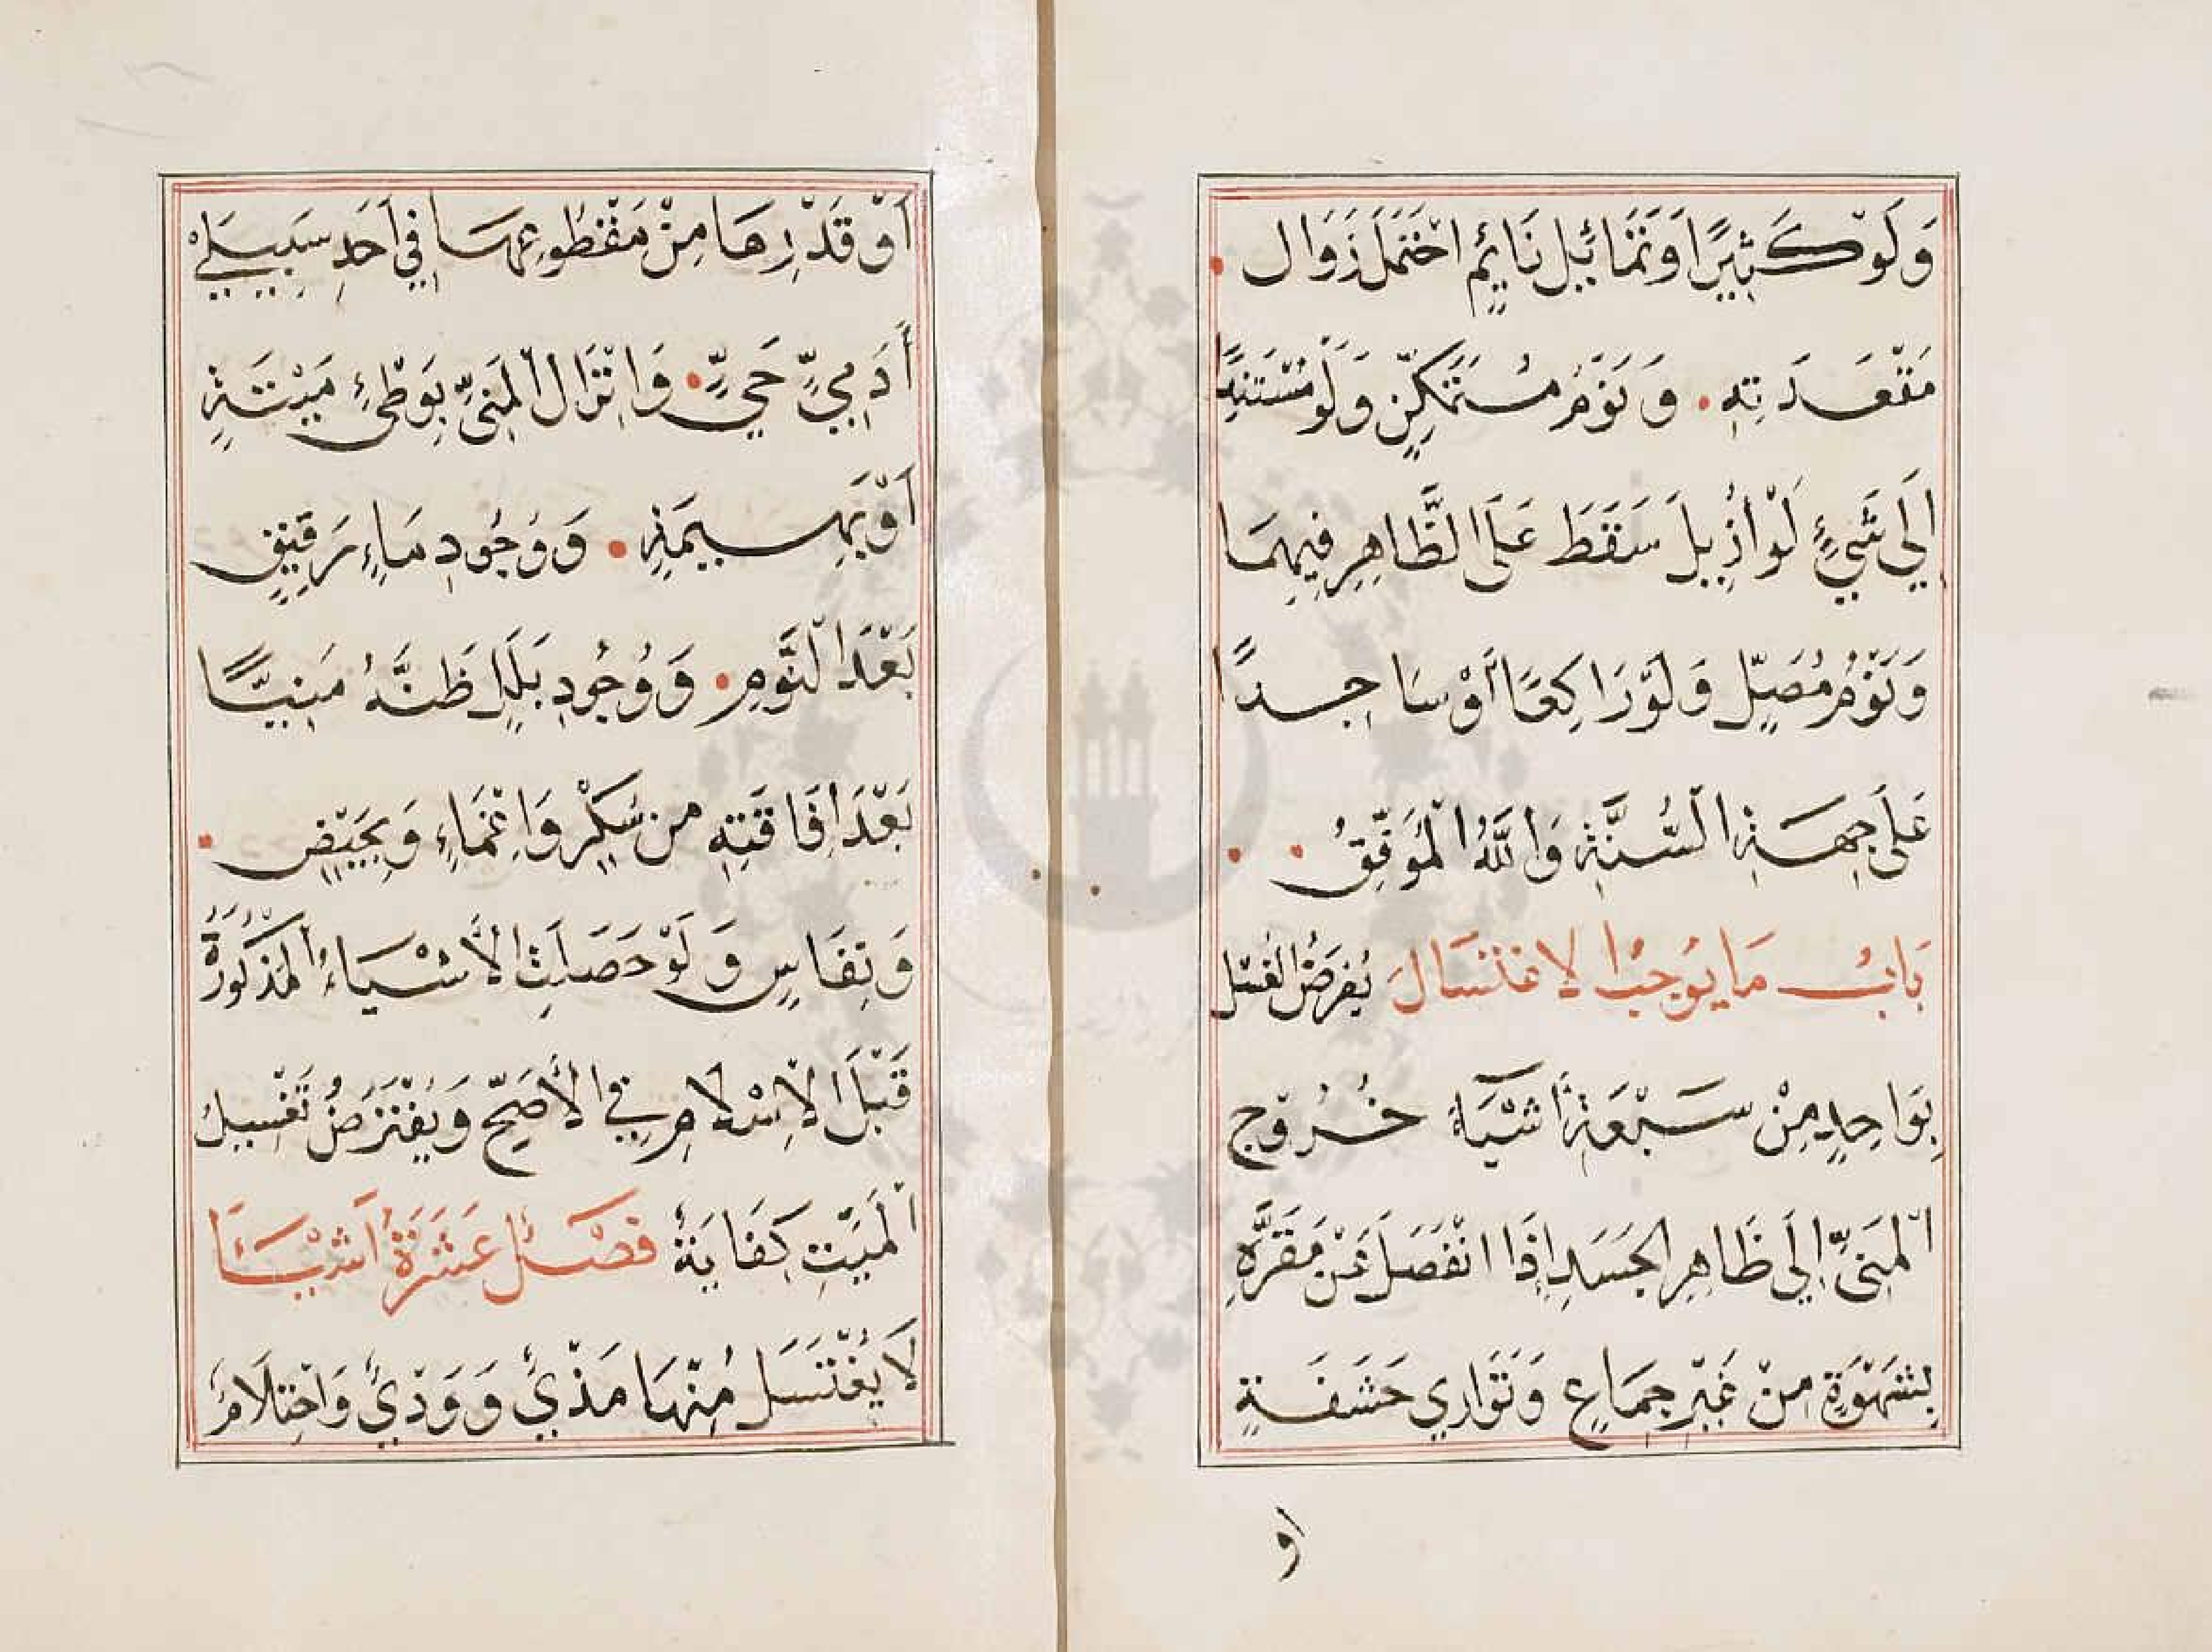 وَلَوْ كَثِيرًا وَتَمَائِلِ نَائِمٍ احْتَمَلَ زَوَال
مَقْعَدَتِهِ وَنَوْمُ مُتَمَكِّنٍ وَلَوْ مُسْتَنِدًا
إِلَى شَيْءٍ لَوْ أُزِيلَ سَقَطَ عَلَى الظَّاهِرِ فِيهِمَا
وَنَوْمُ مُصَلٍّ وَلَوْ رَاكِعًا أَوْ سَاجِدًا
عَلَى جِهَةِ السُّنَّةِ وَاللَّهُ الْمُوَفِّقُ
بَابُ مَا يُوجِبُ الاغْتِسَالَ يُفْرَضُ الْغُسْل
بِوَاحِدٍ مِنْ سَبْعَةِ أَشْيَاءَ خُرُوج
الْمَنِيِّ إِلَى ظَاهِرِ الْجَسَدِ إِذَا انْفَصَلَ عَنْ مَقَرِّهِ
بِشَهْوَةٍ مِنْ غَيْرِ جِمَاعٍ وَتَوَارِي حَشَفَةٍ
او
أَوْ قَدْرِهَا مِنْ مَقْطُوعِهَا فِي أَحَدِ سَبِيلَيْ
أَدَمِيٍّ حَيٍّ وَانْزَالُ الْمَنِيِّ بِوَطْئِ مَيْتَةٍ
أَوْ بَهِيمَةٍ وَوُجُودِ مَاءٍ رَقِيقٍ
بَعْدَ النَّوْمِ وَوُجُودِ بَلَلٍ ظَنَّهُ مَنِيًّا
بَعْدَ إِفَاقَتِهِ مِن سُكْرٍ وَاغْمَاءٍ وَبِحَيْضٍ
وَنِفَاسٍ وَلَوْ حَصَلَتِ الْأَشْيَاءُ الْمَذْكُورَةُ
قَبْلَ الْإِسْلَامِ فِي الْأَصَحِّ وَيُفْتَرَضُ تَغْسِيلُ
الْمَيِّتِ كِفَايَةً فصْل عَشَرَةُ أَشْيَاءَ
لَا يُغْتَسَل مِنْهَا مَذْيٌ وَوَدْيٌ وَاحْتِلَامٌ